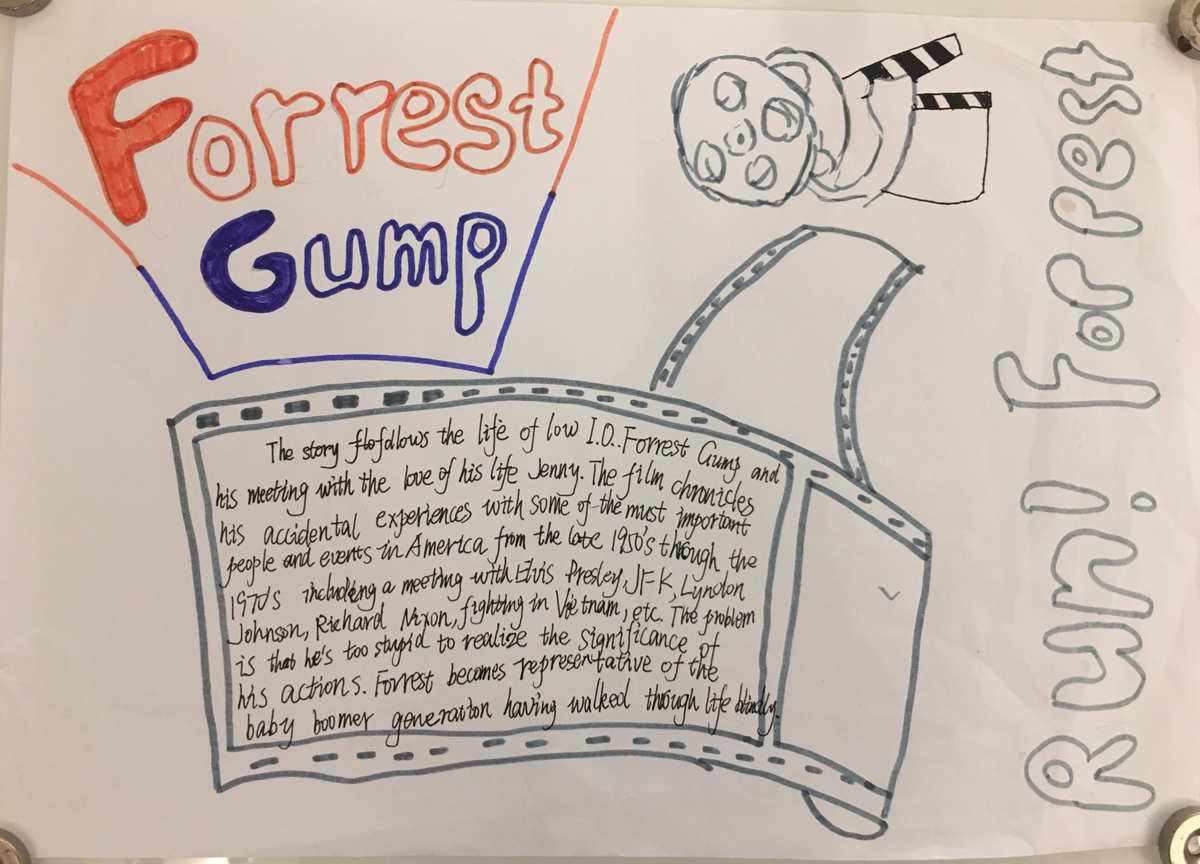 Forrest
Gump
The story flofollows the life of low I.Q. Forrest Gump and
his meeting with the love of his life Jenny. The film chronicles
his accidental experiences with some of the must important
people and events in America from the late 1950's through the
1970's including a meeting with Elvis Presley, JFK, Lyndon
Johnson, Richard Nixon, fighting in Vietnam, etc. The problem
is that he's too stupid to realize the significance of
his actions. Forrest becomes representative of the
baby boomer generation having walked through life blindly.
Run! Forrest